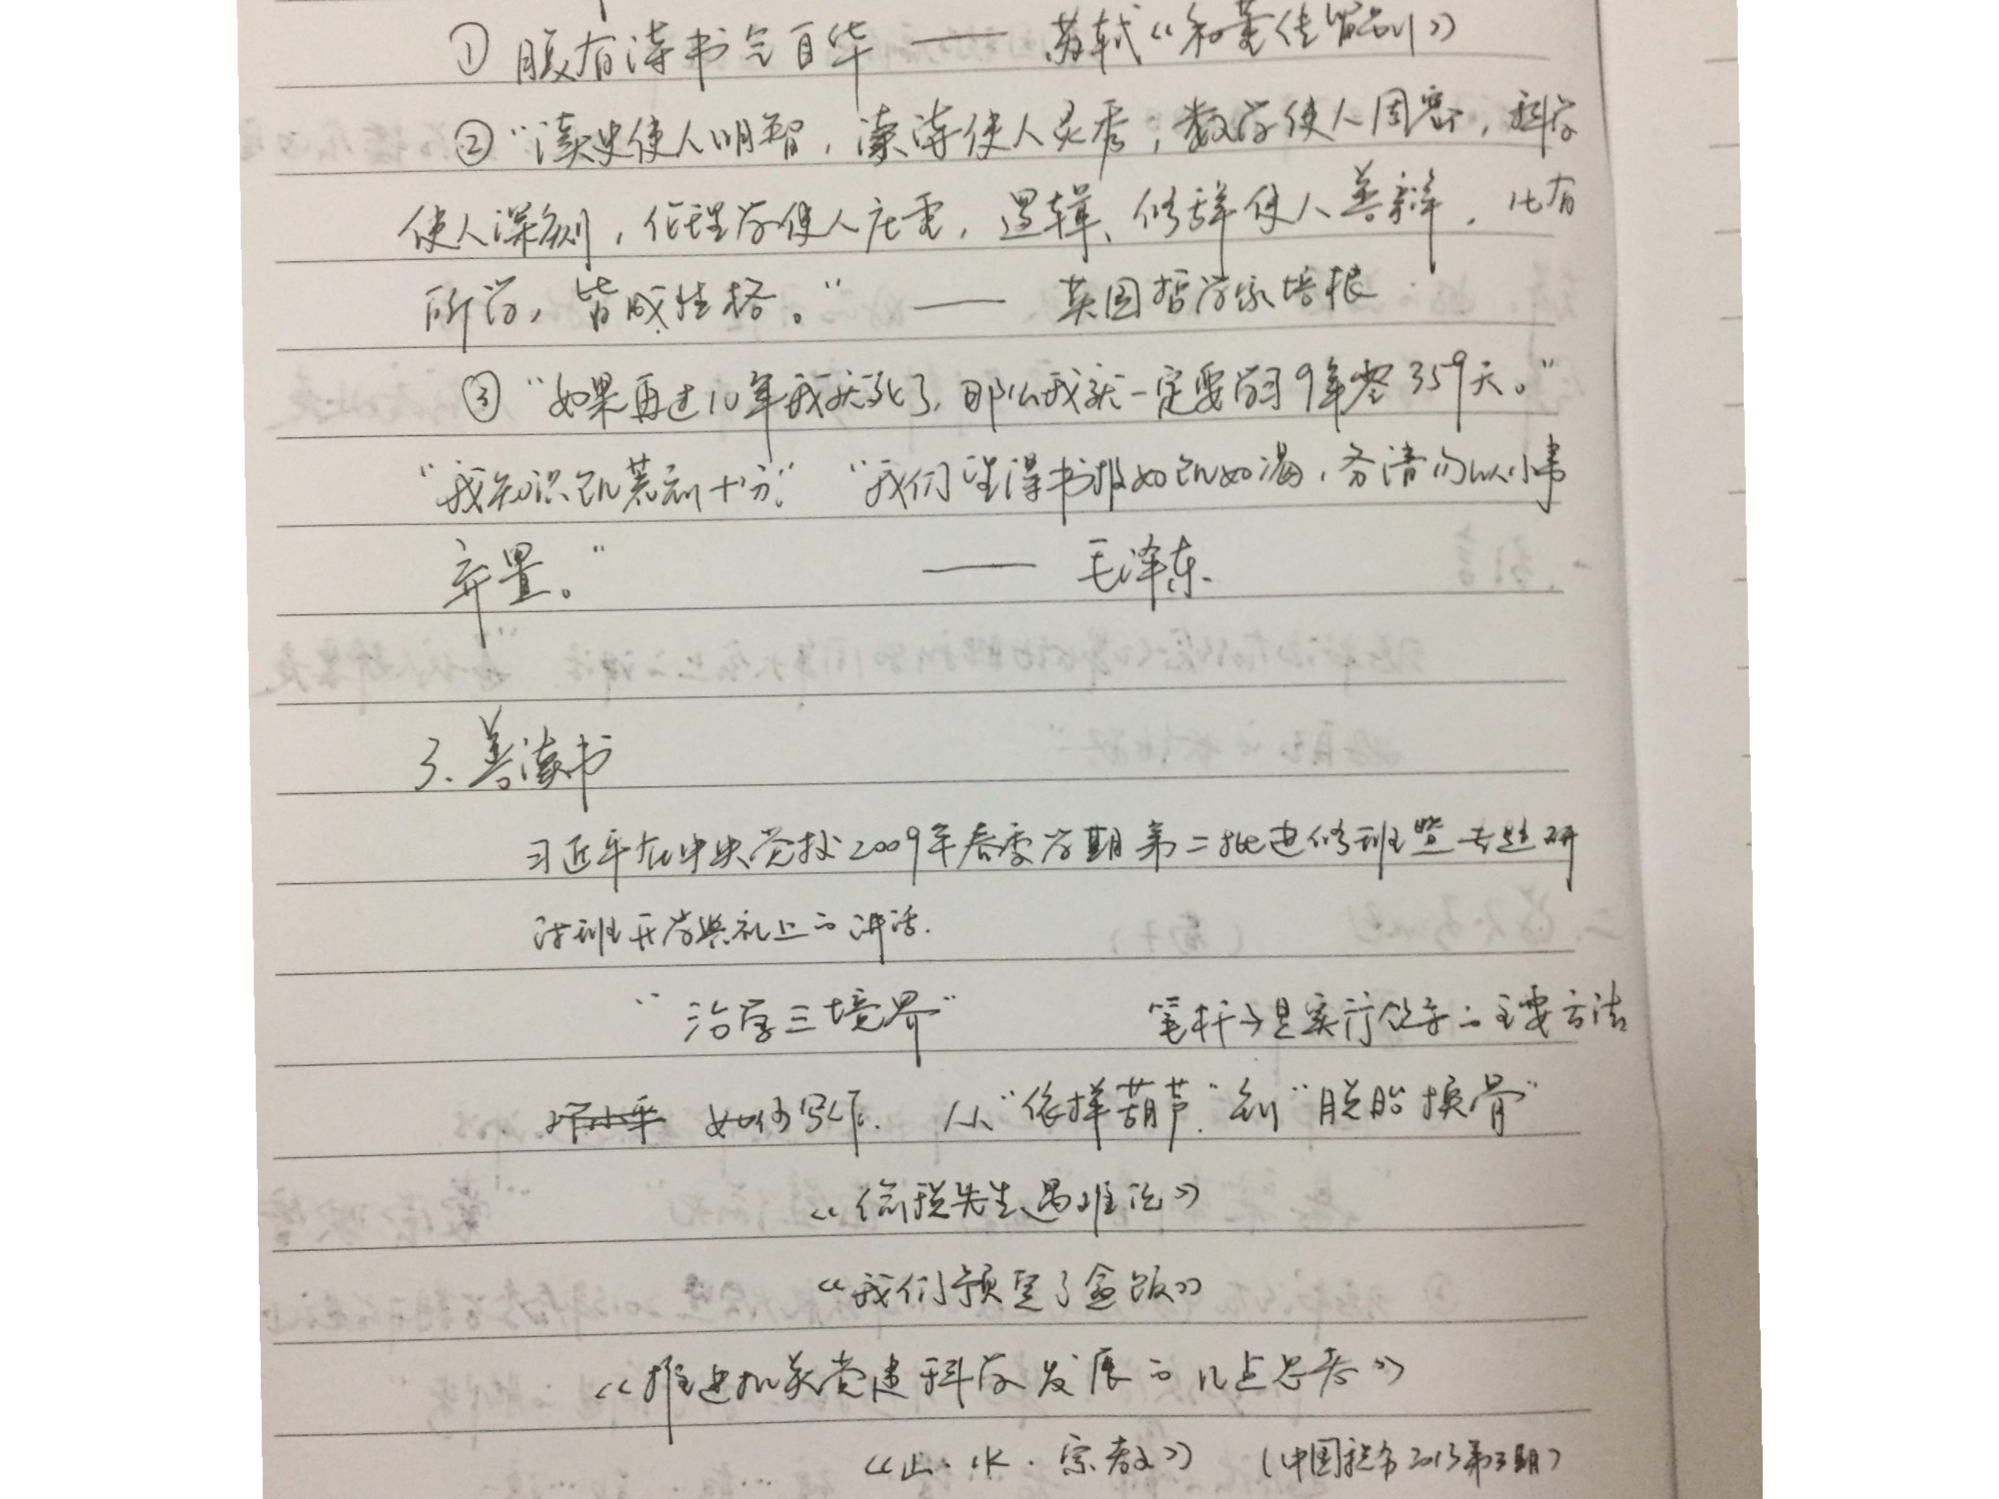 ① 腹有诗书气自华 —— 苏轼《和董传留别》
② “读史使人明智，读诗使人灵秀，数学使人周密，科学
使人深刻，伦理学使人庄重，逻辑、修辞使人善辩，凡有
所学，皆成性格。” —— 英国哲学家培根
③ “如果再过10年我就死了，那么我就一定要学习9年零359天。”
“我知识饥荒到十分” “我们望得书报如饥如渴，务请勿以小事
弃置。” —— 毛泽东
3、善读书
习近平在中央党校2009年春季学期第二批进修班暨专题研
讨班开学典礼上的讲话.
“治学三境界” 笔杆子是实行领导的主要方法
如何写作. 从“依样葫芦”到“脱胎换骨”
《偷税先生遇难记》
《我们预定了盒饭》
《推进机关党建科学发展的几点思考》
《山·水·宗教》 （中国税务2013第3期）